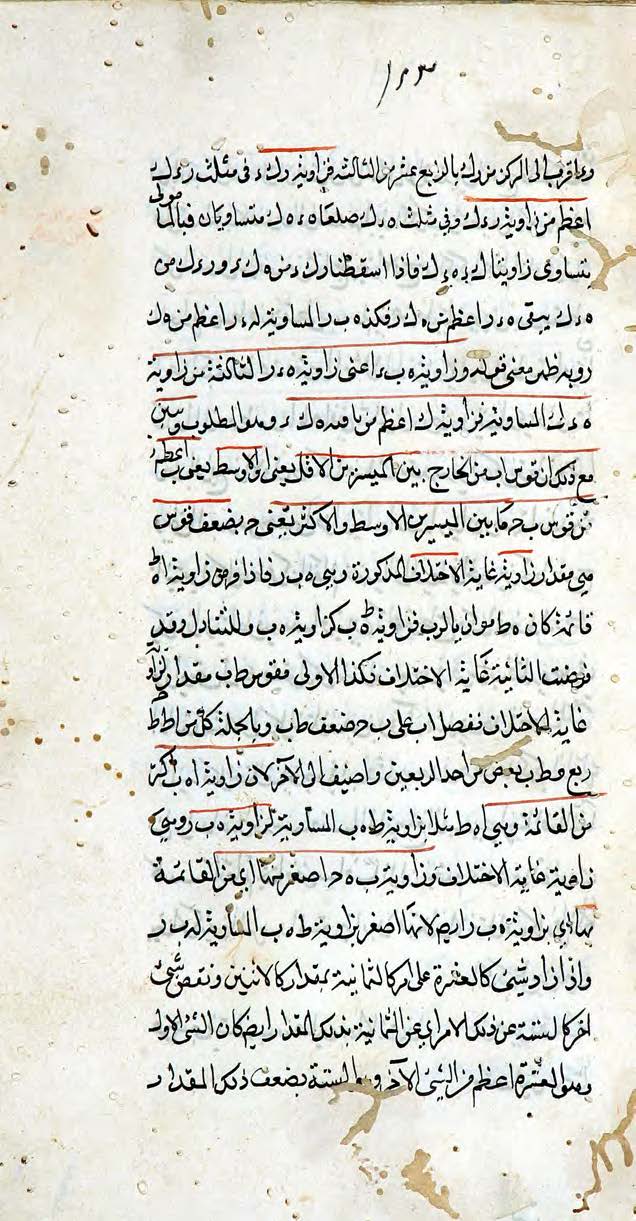 ١٢٣
وء اقرب الى المركز من رك بالرابع عشر من الثالثة فزاوية رك ء فى مثلث ر ء ك
اعظم من زاوية ر ء ك وفى مثلث ه ء ك ضلعاه ه ك متساويان فبالمأمونى
يتساوى زاويتا ك فاذا اسقطنا رك ء من ه ك ء و ر ء ك من
ه ء ك يبقى ه ء ر اعظم من ه ك ر فكذا ه ب ر المساوية له ء ر اعظم من ه ك
ر وبه ظهر معنى قوله وزاوية ه ب ء اعنى زاوية ه ء ر الثالثة من زاوية
ه ء ك المساوية لزاوية ك اعظم من ه ك ء وهو المطلوب وتبين
مع ذلك ان قوس اب من الخارج بين الميسرين الاقل يعنى ا والاوسط يعنى ب اعظم
من قوس ب ح ما بين الميسرين الاوسط والاكثر يعنى ح بضعف قوس
هى مقدار زاوية غاية الاختلاف المذكورة وهى ه ب ر فاذا فرض زاوية اه ط
قائمة كان ه ط موازيا لرب فزاوية ط ه ب كزاوية ه ب ر للتبادل وقد
فرضت الثانية غاية الاختلاف فكذا الاولى فقوس ط ب مقدار لزاوية
غاية الاختلاف ففضل اب على ب ح ضعف ط ب وبالجملة كل من ا ط ط ح
ربع و ط ب نقص من احد الربعين واضيف الى الآخر لان زاوية ا ه ب اكثر
من القائمة وهى ا ه ط مثلا بزاوية ط ه ب المساوية لزاوية ه ب ر وهى
زاوية غاية الاختلاف وزاوية ب ه ح اصغر منها اى من القائمة
بها اى بزاوية ه ب ر ايضا لانها اصغر بزاوية ط ه ب المساوية له ب ر
واذا زاد شئ كالعشرة على امر كالثمانية بمقدار كالاثنين ونقص شئ
آخر كالستة عن ذلك الامر اى عن الثمانية بذلك المقدار ايضا كان الشئ الاول
وهو العشرة اعظم من الشئ الآخر وهو الستة بضعف ذلك المقدار